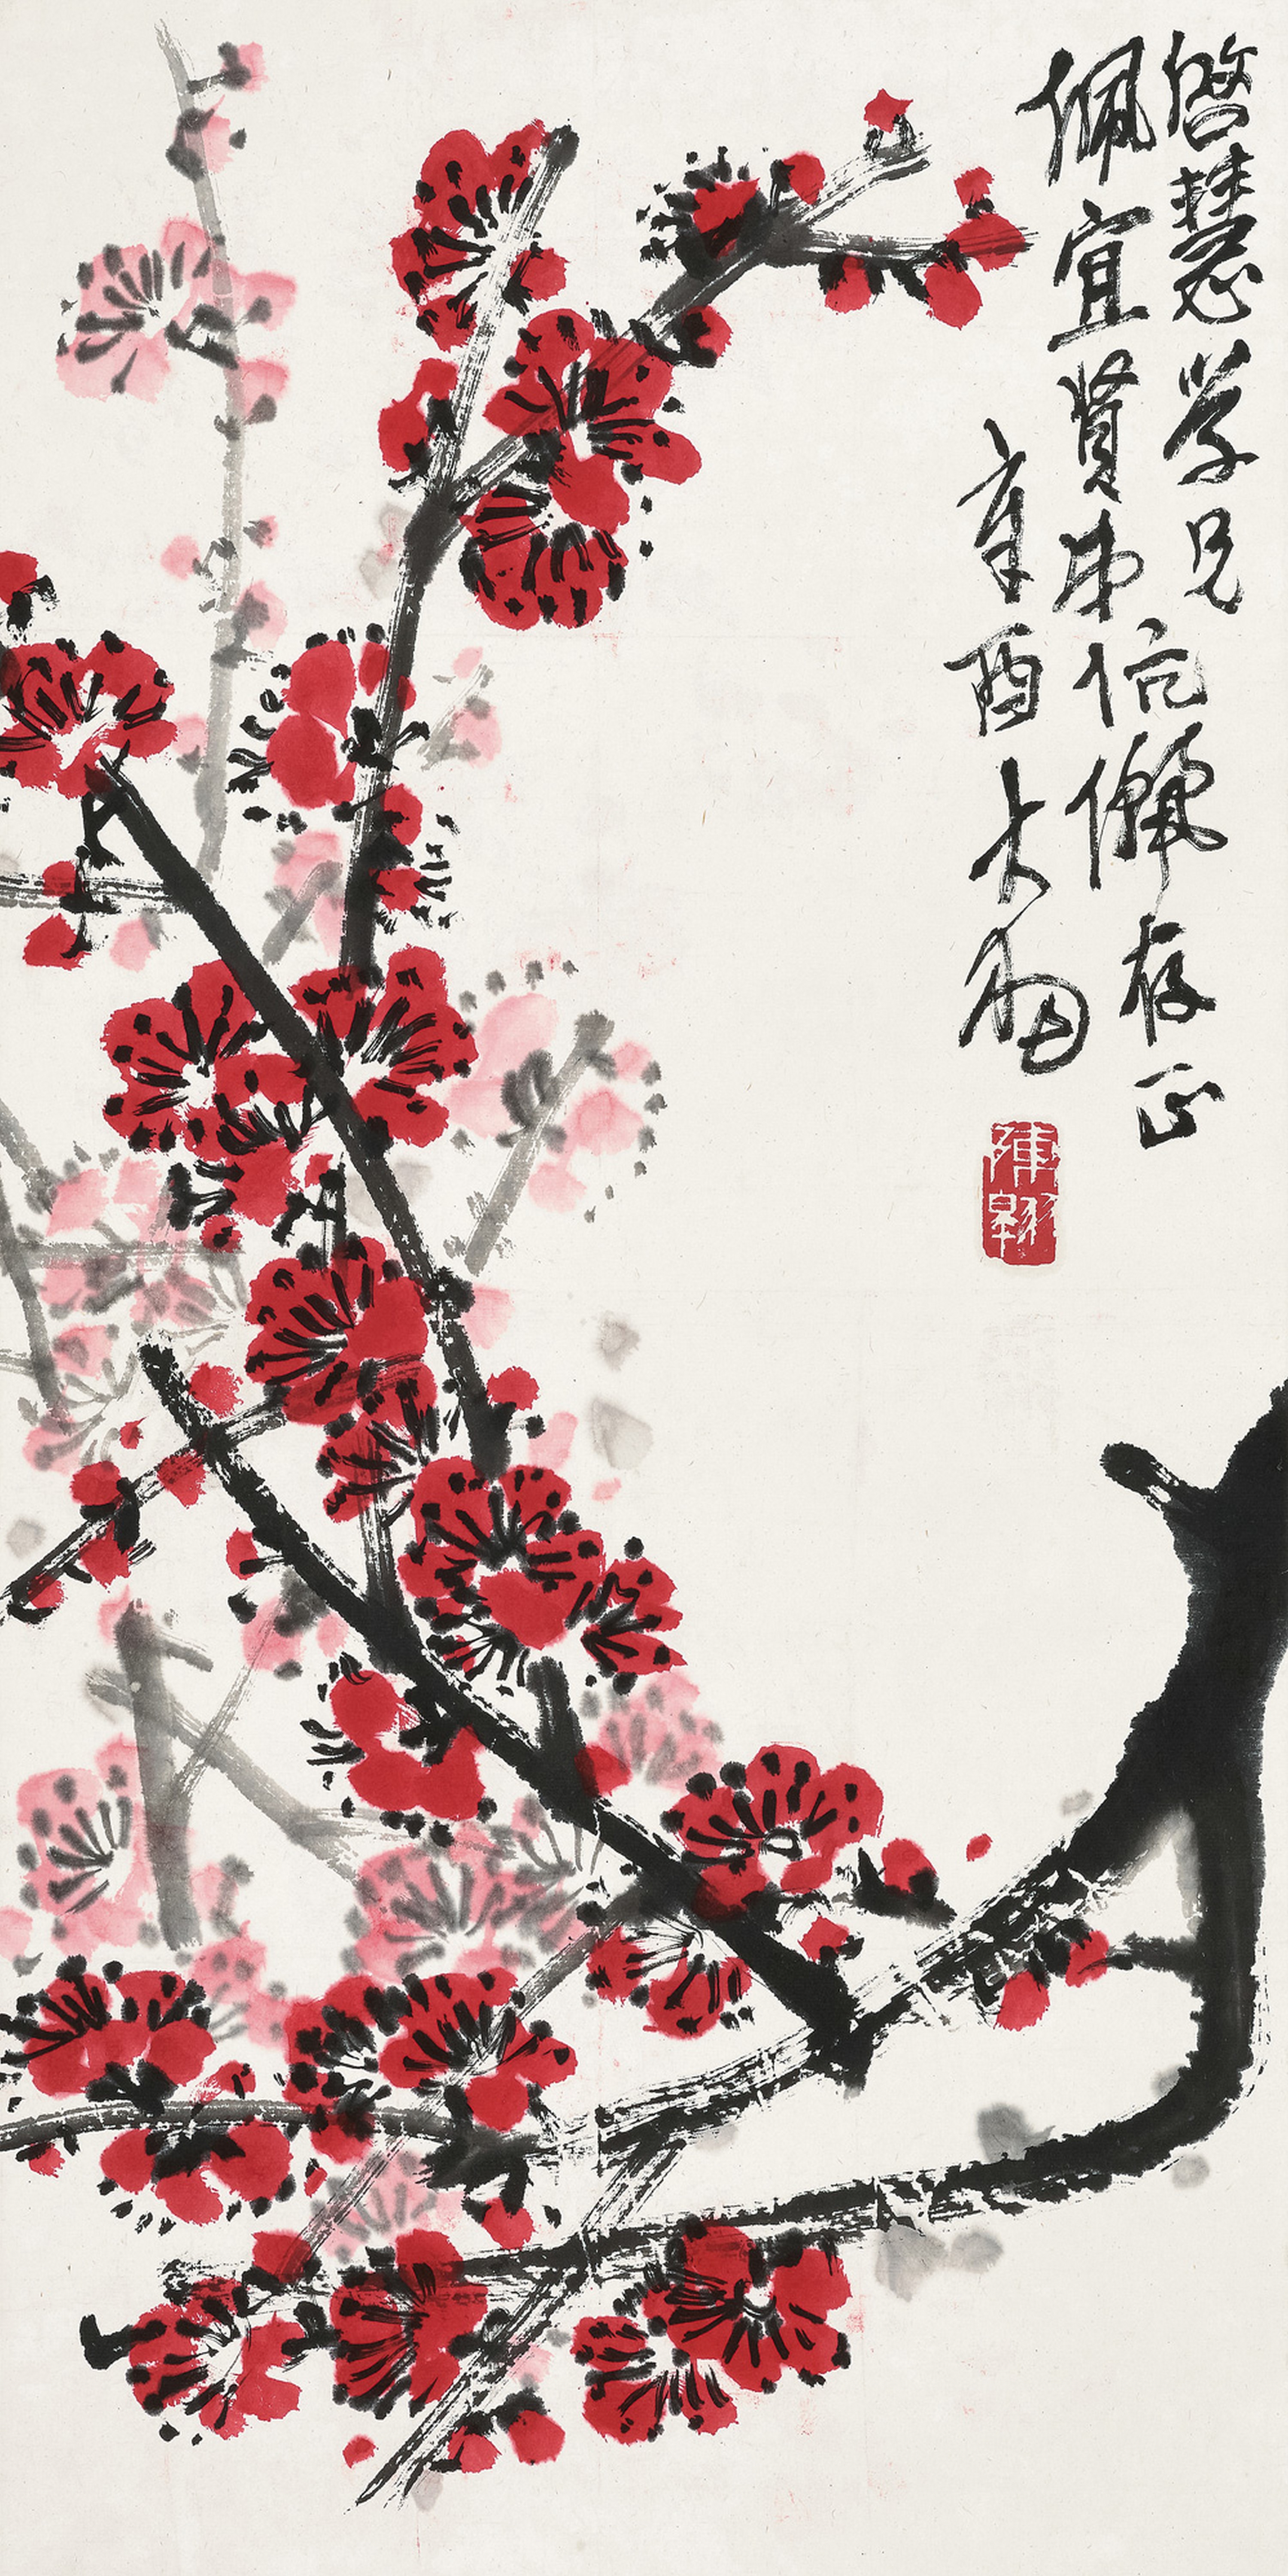 啓慧学兄
佩宜賢弟
伉儷存正
辛酉大羽
陳翱